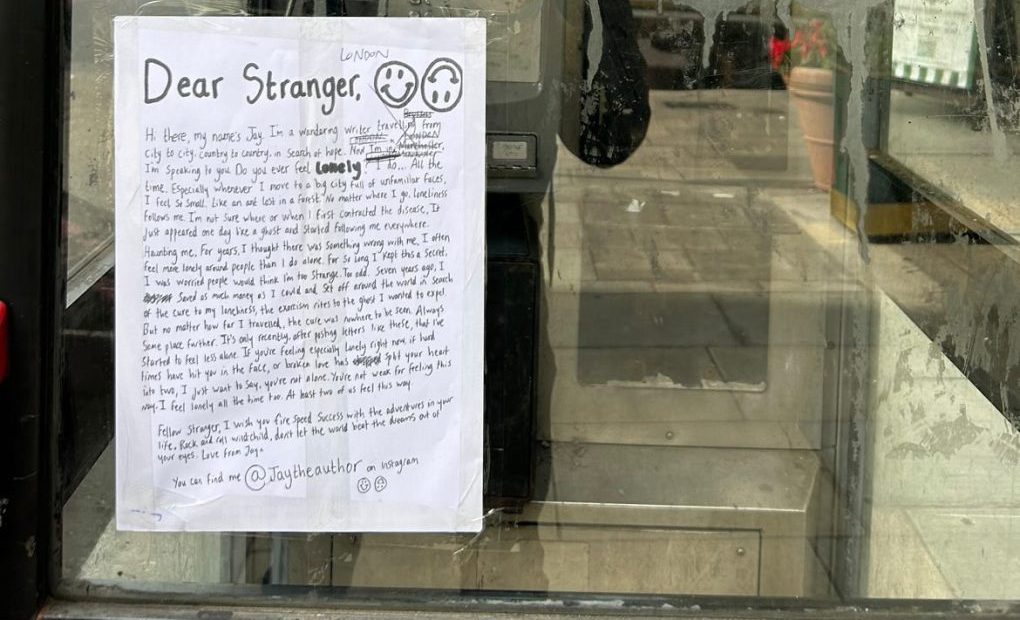 LONDON
Dear Stranger,
Hi there, my name's Jay. I'm a wandering writer travelling from
City to city. Country to country, in search of hope. Now I'm in
I'm speaking to you. Do you ever feel Lonely? I do... All the
time. Especially whenever I move to a big city full of unfamiliar faces,
I feel so small. Like an ant lost in a forest. No matter where I go, loneliness
follows me. I'm not sure where or when I first contracted the disease, It
just appeared one day like a ghost and started following me everywhere.
Haunting me. For years, I thought there was something wrong with me, I often
feel more lonely around people than I do alone. For so long I kept this a secret.
I was worried people would think I'm too strange. Too odd. Seven years ago, I
saved as much money as I could and set off around the world in search
of the cure to my loneliness, the exorcism rites to the ghost I wanted to expel.
But no matter how far I travelled, the cure was nowhere to be seen. Always
some place further. It's only recently, after posting letters like these, that I've
started to feel less alone. If you're feeling especially lonely right now, if hard
times have hit you in the face, or broken love has split your heart
into two, I just want to say, you're not alone. You're not weak for feeling this
way. I feel lonely all the time too. At least two of us feel this way.
Fellow Stranger, I wish you fire speed success with the adventures in your
life. Rock and roll wildchild, don't let the world beat the dreams out of
your eyes. Love from Jay.
You can find me @Jaytheauthor on instagram